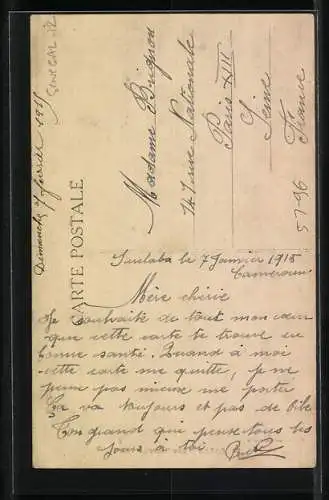 SENEGAL 12
Dimanche 7 février 1915
CARTE POSTALE
Madame Brignon
147 rue Nationale
Paris XIII
Seine
France
5796
le 7 Janvier 1915
Cameroun
Mère chérie
Je souhaite de tout mon cœur
que cette carte te trouve en
bonne santé. Quand à moi
cette carte me quitte, je ne
peux pas mieux me porter
Ça va toujours et pas de bile
Ton grand qui pense tous les
jours à toi